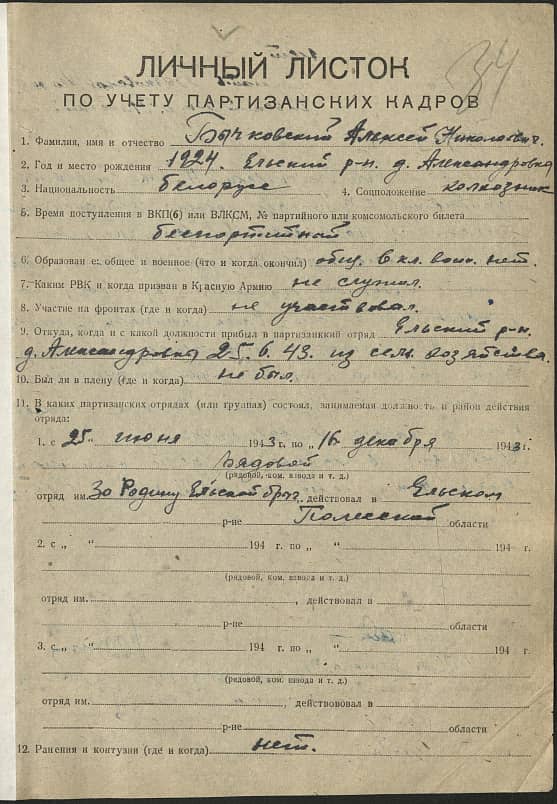 34
ЛИЧНЫЙ ЛИСТОК
ПО УЧЕТУ ПАРТИЗАНСКИХ КАДРОВ
1. Фамилия, имя и отчество Бычковский Алексей Николаевич.
2. Год и место рождения 1924. Ельский р-н. д. Александровка
3. Национальность белорус 4. Соцположение колхозник
5. Время поступления в ВКП(б) или ВЛКСМ, № партийного или комсомольского билета
беспортийный
6. Образован е: общее и военное (что и когда окончил) общ. 6 кл. воен. нет.
7. Каким РВК и когда призван в Красную Армию не служил.
8. Участие на фронтах (где и когда) не участвовал.
9. Откуда, когда и с какой должности прибыл в партизанкий отряд Ельский р-н.
д. Александровка 25. 6. 43. из сель. хозяйства.
10. Был ли в плену (где и когда) не был.
11. В каких партизанских отрядах (или группах) состоял, занимаемая должность и район действия
отряда:
1. с 25 " июня 1943 г. по " 16 декабря 1943 г.
Рядовой
(рядовой, ком. взвода и т. д.)
отряд им. За Родину Ельской бриг., действовал в Ельском
р-не Полесской области
2. с „ “ 194 г. по „ “ 194 г.
(рядовой, ком. взвода и т. д.)
отряд им. , действовал в
р-не области
3. с „ “ 194 г. по „ “ 194 г.
(рядовой, ком. взвода и т. д.)
отряд им. , действововал в
р-не области
12. Ранения и контузии (где и когда) нет.